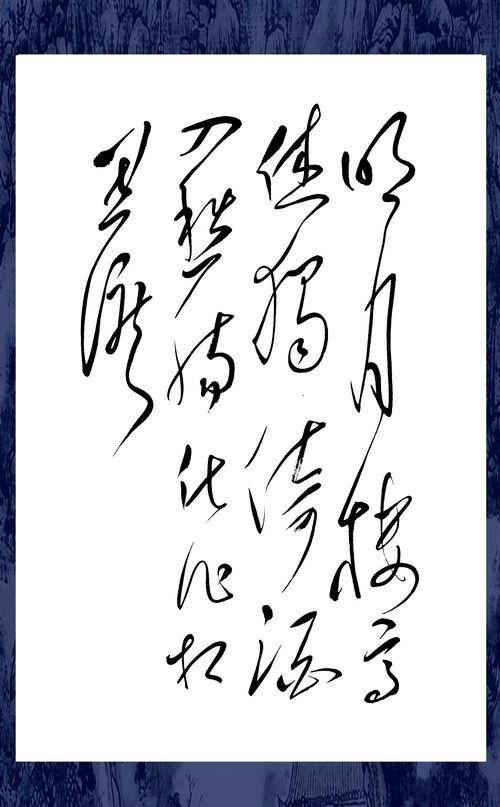 明月楼高
休独倚酒
入愁肠化作相
思泪